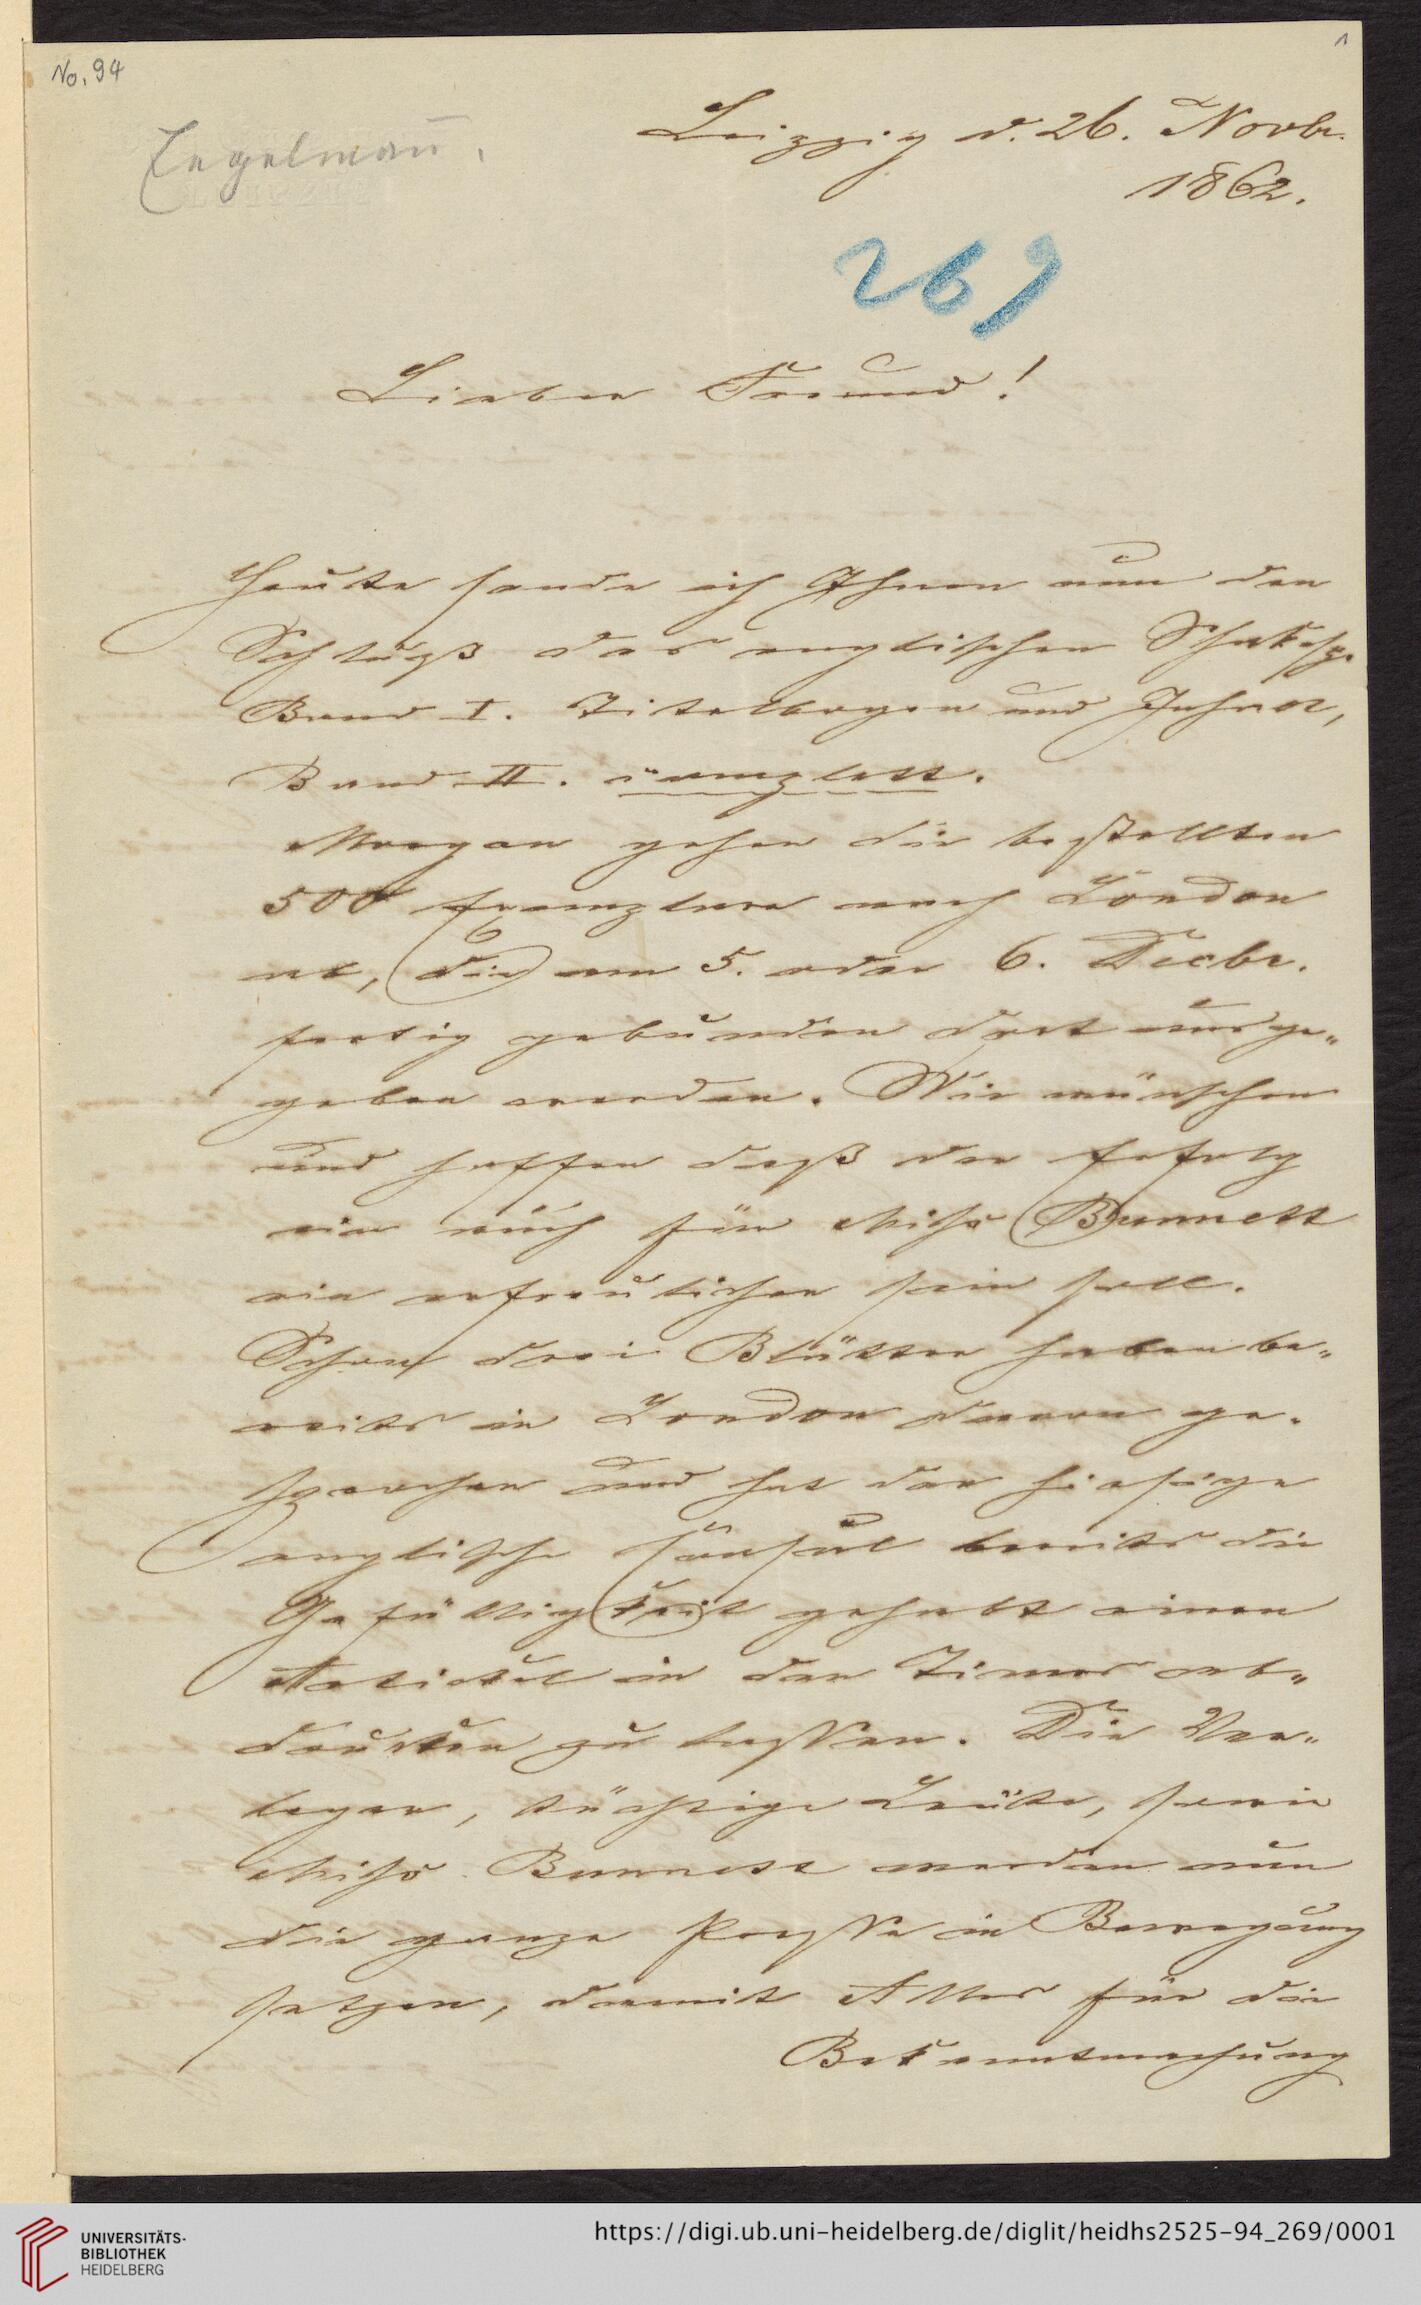 No. 94
1
Engelmañ.
Leipzig d. 26. Novbr.
1862.
269
Lieber Freund!
Heute sende ich Ihnen nun den
Schluß des englischen Shakesp.
Band I. Titelbogen und Inhalt,
Band II. complett.
Morgen gehen die bestellten
500 Exemplare nach London
ab, die am 5. oder 6. Decbr.
fertig gebunden dort ausge„
geben werden. Wir wünschen
und hoffen daß der Erfolg
ein auch für Miss Bunnett
ein erfreulicher sein soll.
Schon drei Blätter haben be„
reits in London davon ge„
sprochen und hat der hiesige
englische Consul bereits die
Gefälligkeit gehabt einen
Artickel in den Times ab„
drucken zu lassen. Die Ver„
leger, tüchtige Leute, sowie
Miss Bunnett werden nun
die ganze Presse in Bewegung
setzen, damit Alles für die
Bekanntmachung
UNIVERSITÄTS-
BIBLIOTHEK
HEIDELBERG
https://digi.ub.uni-heidelberg.de/diglit/heidhs2525-94_269/0001